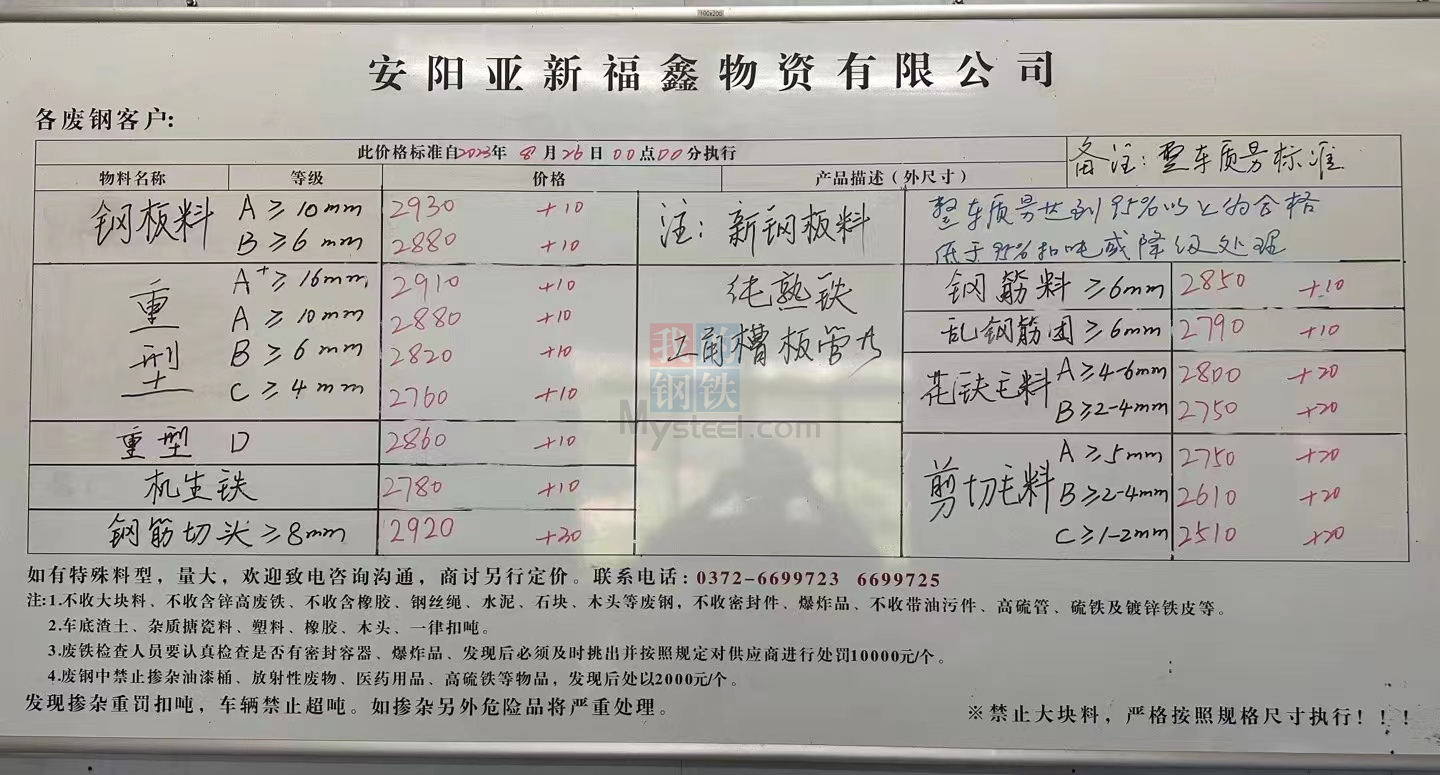 100x200
安阳亚新福鑫物资有限公司
各废钢客户:
此价格标准自2023年 8月26日 00点00分执行
备注: 整车质易标准
物料名称 等级 价格 产品描述(外尺寸)
钢板料 A ≥ 10mm 2930 +10
B ≥ 6mm 2880 +10
注: 新钢板料
整车质易达到95%以上为合格
低于95%扣吨或降级处理
重型 A⁺ ≥ 16mm 2910 +10
A ≥ 10mm 2880 +10
B ≥ 6mm 2820 +10
C ≥ 4mm 2760 +10
重型 D 2860 +10
机生铁 2780 +10
钢筋切头 ≥8mm 2920 +30
纯熟铁
工角槽板管
钢筋料 ≥6mm 2850 +10
乱钢筋团 ≥6mm 2790 +10
花铁毛料 A ≥4-6mm 2800 +20
B ≥2-4mm 2750 +20
剪切毛料 A ≥5mm 2750 +20
B ≥2-4mm 2610 +20
C ≥1-2mm 2510 +20
我的
钢铁
Mysteel.com
如有特殊料型，量大，欢迎致电咨询沟通，商讨另行定价。联系电话：0372-6699723 6699725
注:1.不收大块料、不收含锌高废铁、不收含橡胶、钢丝绳、水泥、石块、木头等废钢，不收密封件、爆炸品、不收带油污件、高硫管、硫铁及镀锌铁皮等。
2.车底渣土、杂质搪瓷料、塑料、橡胶、木头、一律扣吨。
3.废铁检查人员要认真检查是否有密封容器、爆炸品、发现后必须及时挑出并按照规定对供应商进行处罚10000元/个。
4.废钢中禁止掺杂油漆桶、放射性废物、医药用品、高硫铁等物品，发现后处以2000元/个。
发现掺杂重罚扣吨，车辆禁止超吨。如掺杂另外危险品将严重处理。
※禁止大块料，严格按照规格尺寸执行！！！